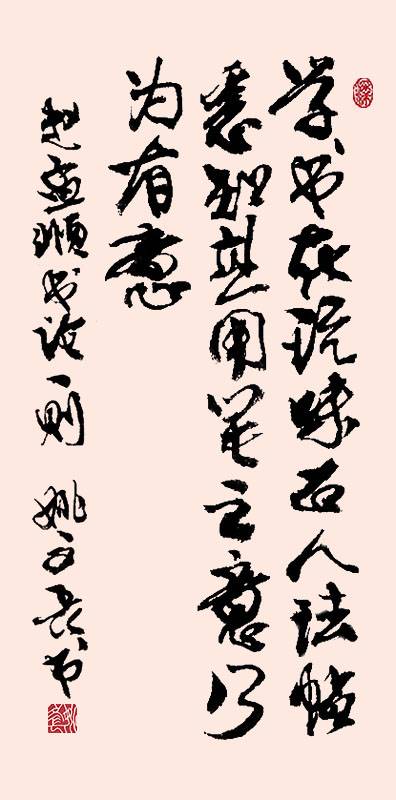 学书在玩味古人法帖
悉知其用笔之意乃
为有意
赵孟頫书论一则 姚 书